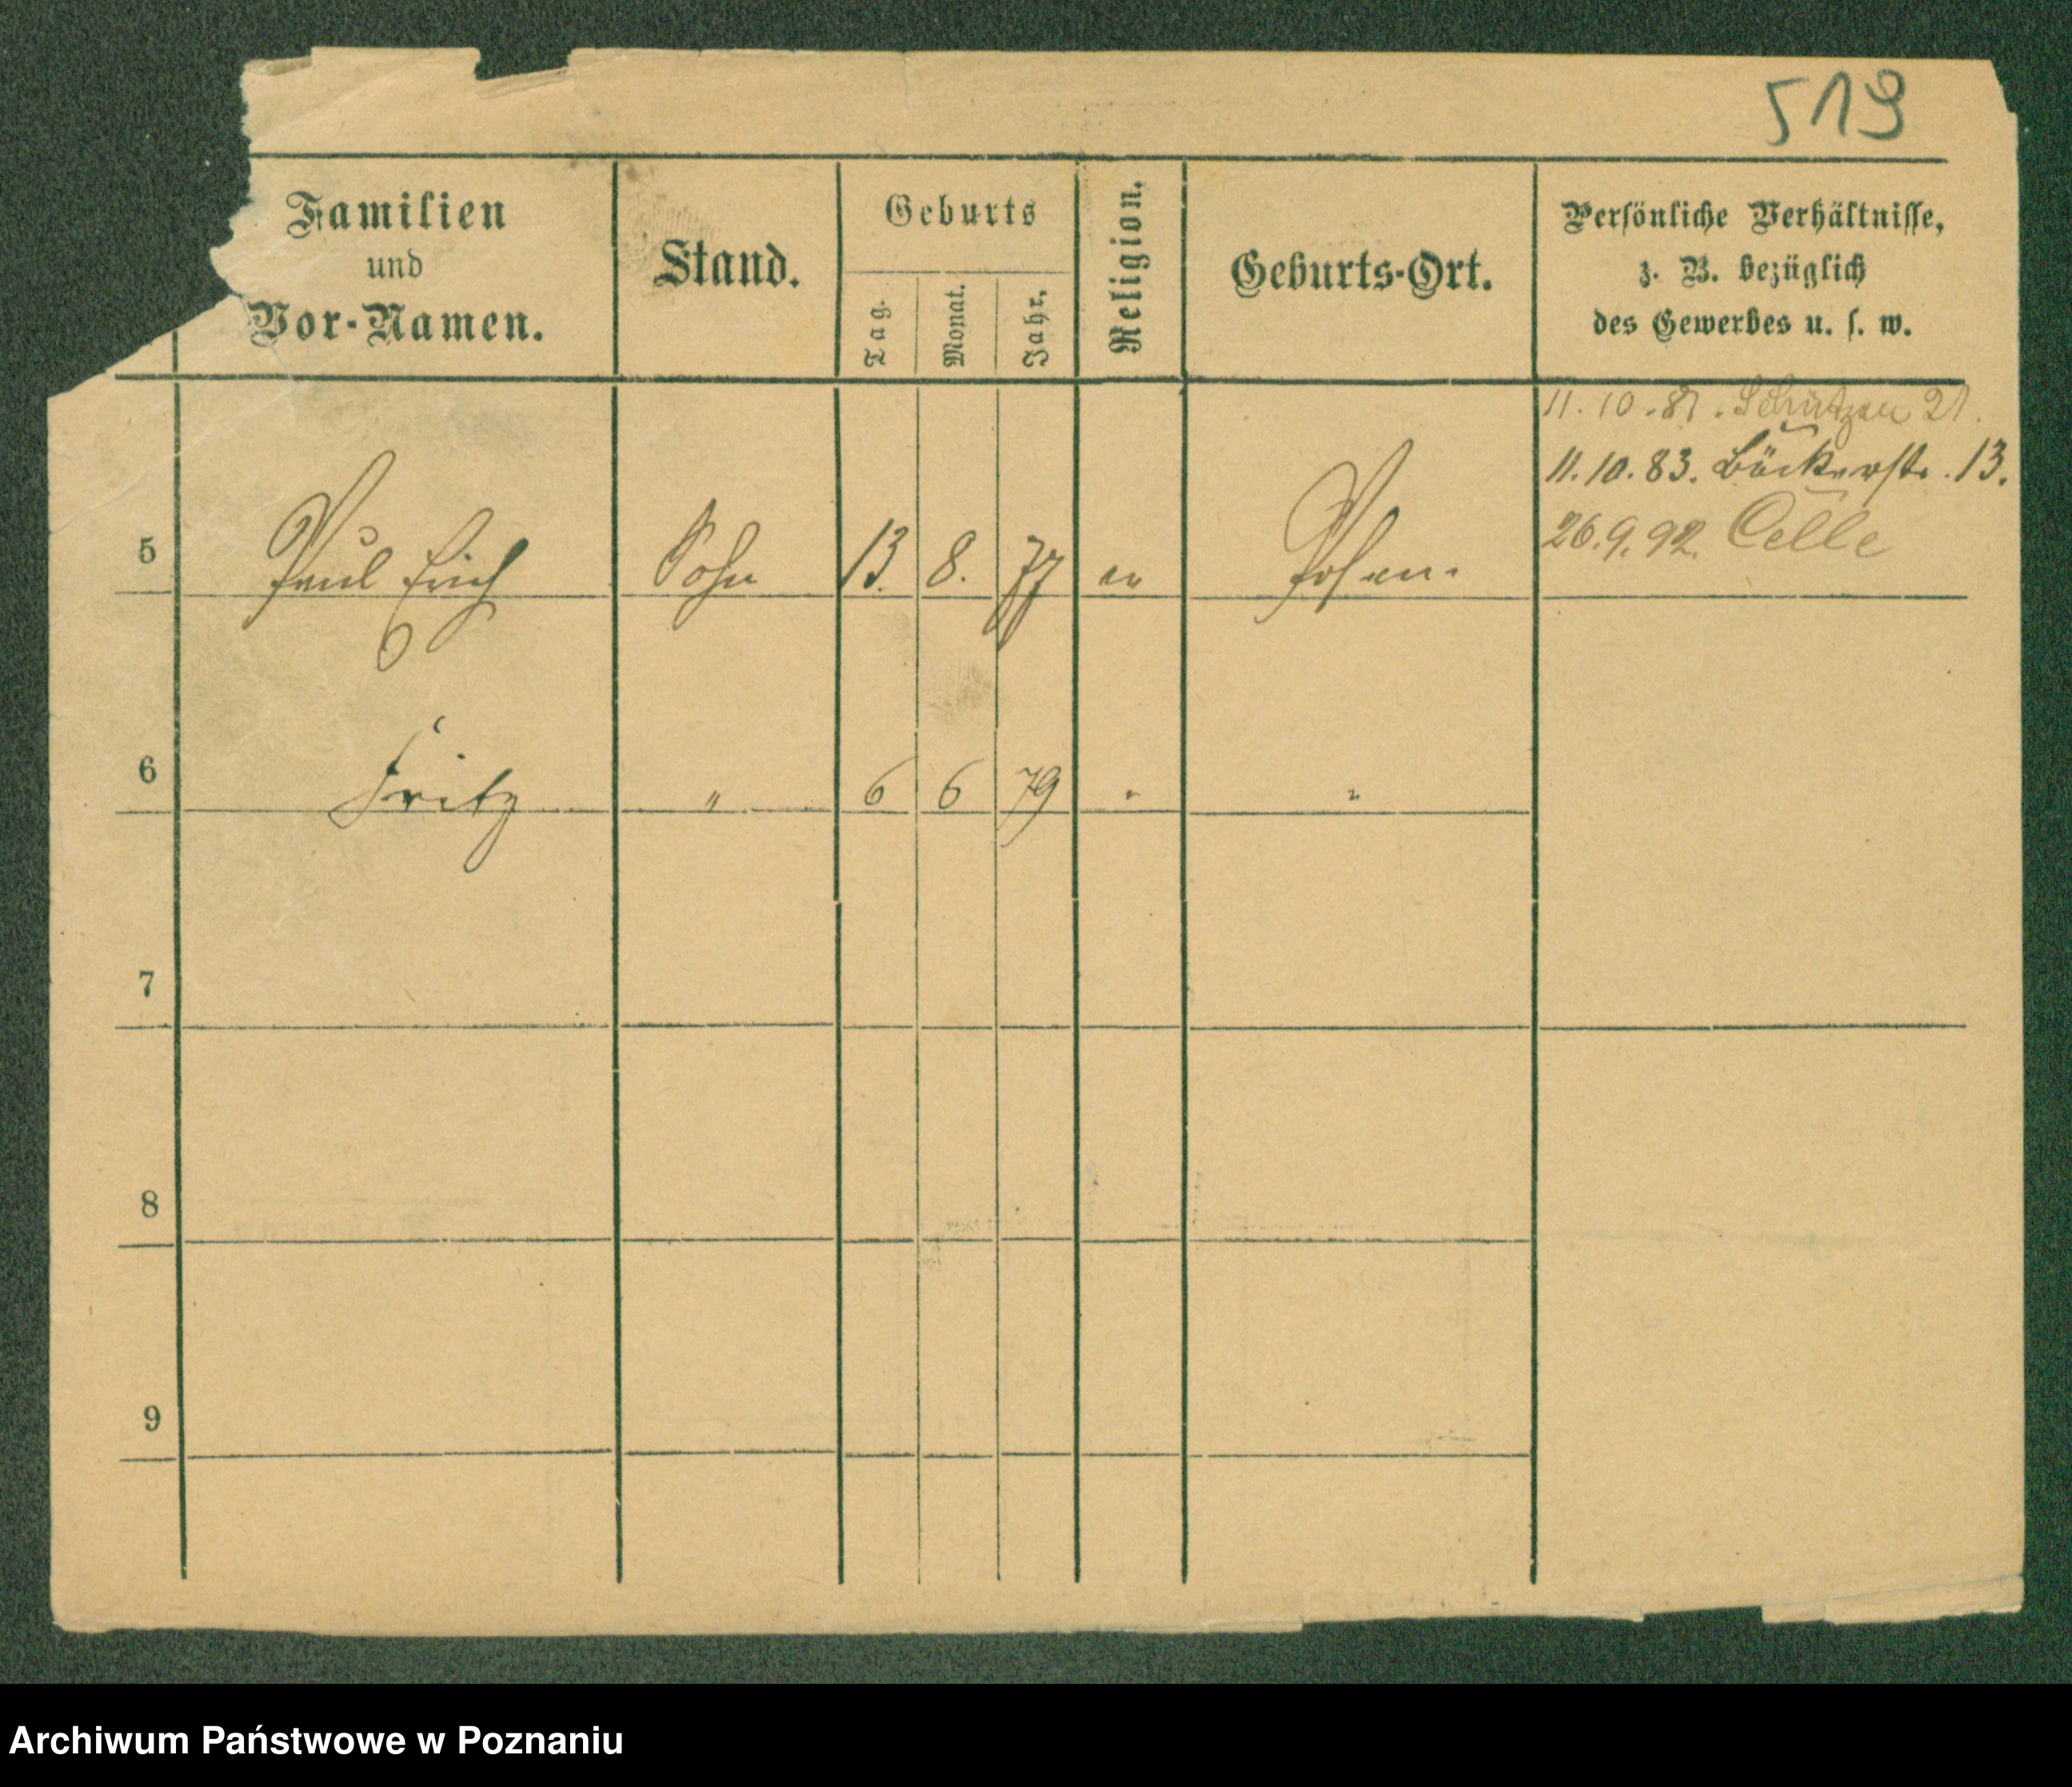 519
Familien
und
Vor-Namen.
Stand.
Geburts
Tag.
Monat.
Jahr.
Religion.
Geburts-Ort.
Persönliche Verhältnisse,
z. B. bezüglich
des Gewerbes u. s. w.
11.10.81. Schützen 21.
11.10.83. Bäckerstr. 13.
26.9.92. Celle
5 Paul Erich Sohn 13. 8. 77 ev Posen.
6 Fritz " 6 6 79 " "
7
8
9
Archiwum Państwowe w Poznaniu